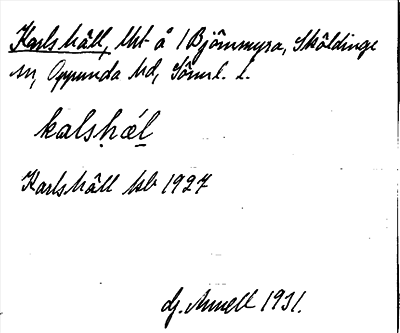 Karlshäll, lht å 1 Björnmyra, Sköldinge
sn, Oppunda hd, Söderml. l.
kalshǽl
Karlshäll hsb 1927
Dj. Annell 1931.